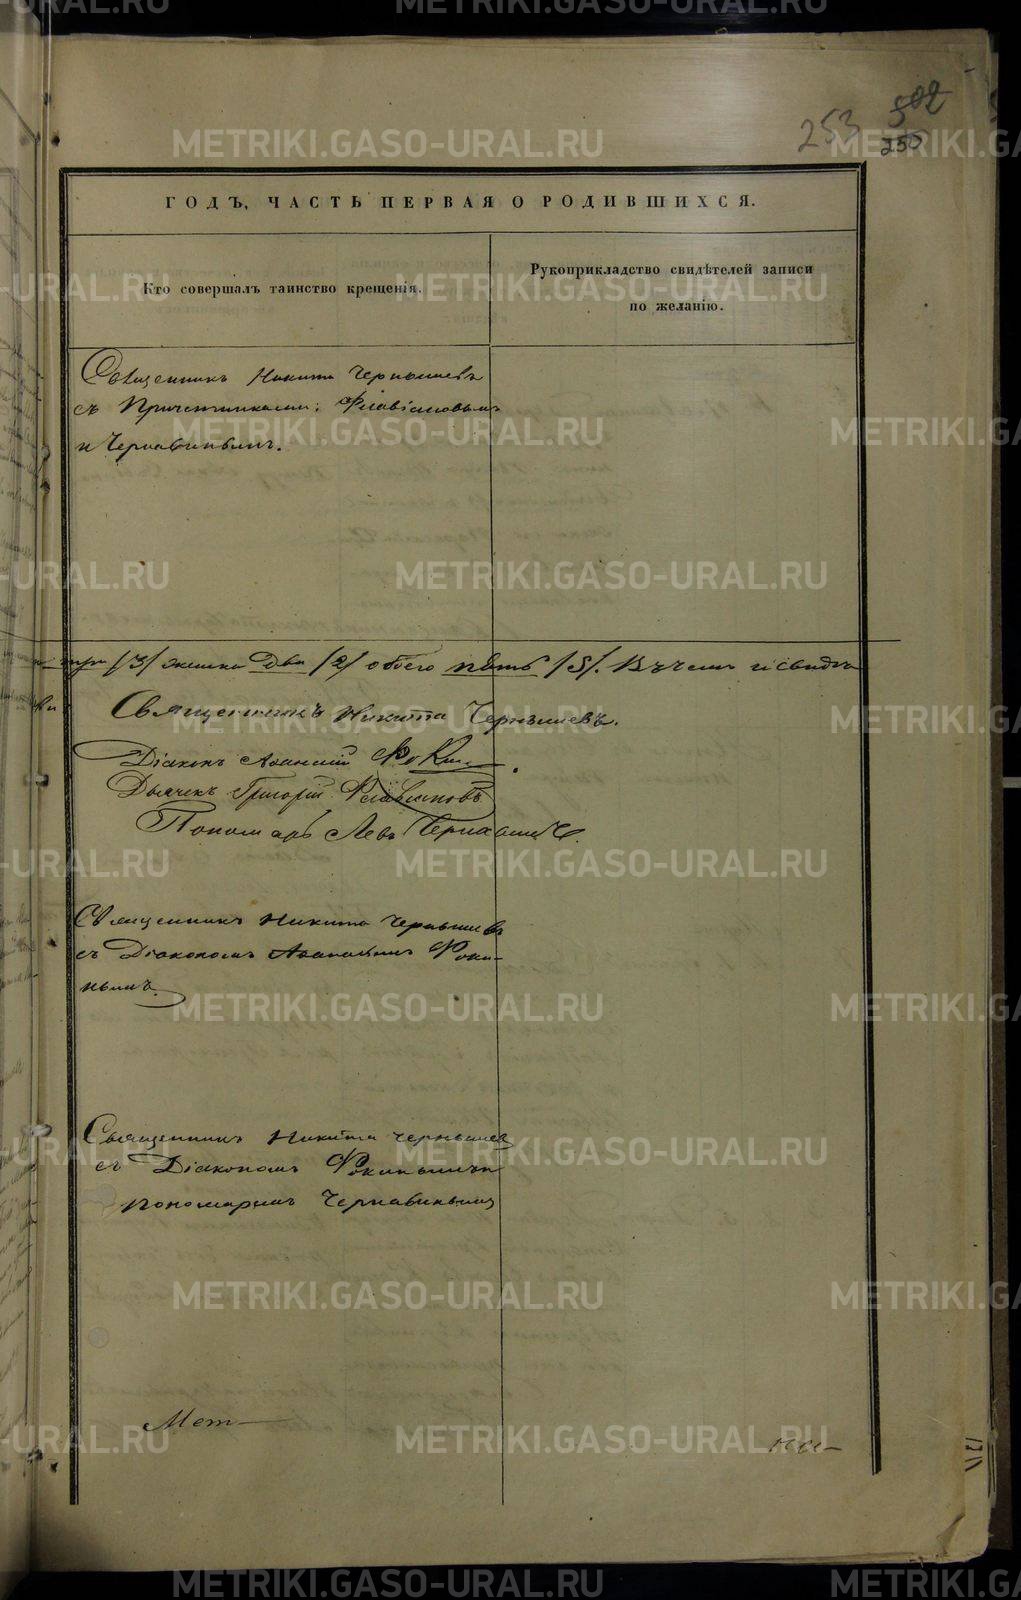 253 502
250
ГОДЪ, ЧАСТЬ ПЕРВАЯ О РОДИВШИХСЯ.
Кто совершалъ таинство крещенія.
Рукоприкладство свидѣтелей записи
по желанію.
Священникъ Никита Чернышевъ
съ Причетниками: Флавіановымъ
и Чернавинымъ.
три /3/ женска два /2/ обоего пять /5/. Въ чемъ и свидѣ
Священникъ Никита Чернышевъ.
Діаконъ Афанасій Фокинъ.
Дьячекъ Григорій Флавіановъ
Пономарь Левъ Чернавинъ.
Священникъ Никита Чернышевъ
съ Діакономъ Афанасіемъ Фоки-
нымъ.
Священникъ Никита Чернышевъ
съ Діакономъ Фокинымъ и
пономаремъ Чернавинымъ
Мет-
METRIKI.GASO-URAL.RU